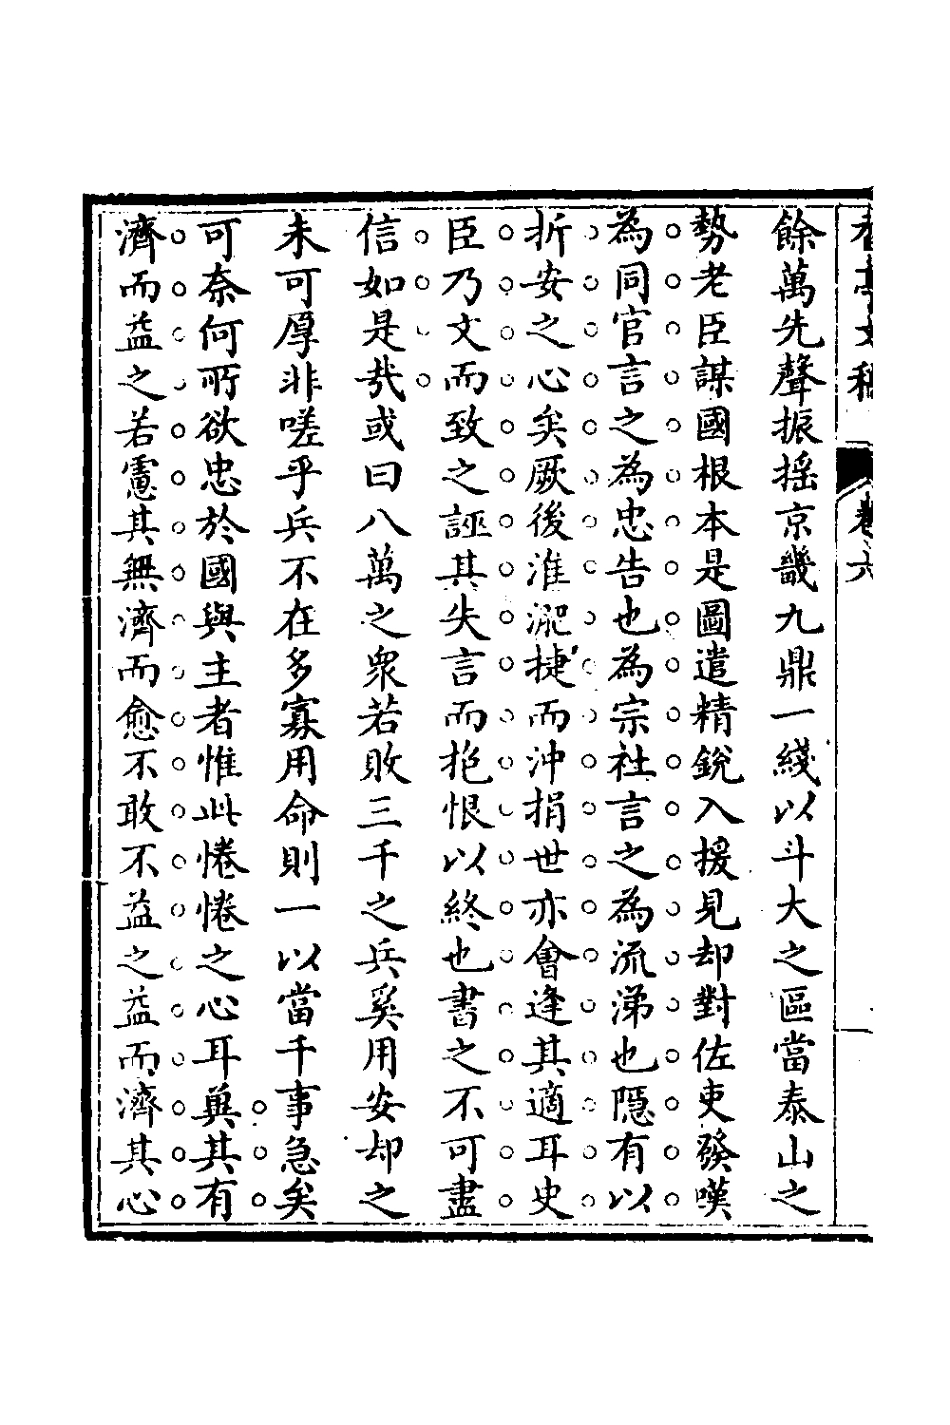 餘萬先聲振摇京畿九鼎一綫以斗大之區當泰山之
勢老臣謀國根本是圖遣精銳入援見却對佐吏發嘆
為同官言之為忠告也為宗社言之為流涕也隱有以
折安之心矣厥後淮淝捷而沖捐世亦會逢其適耳史
臣乃文而致之誣其失言而抱恨以終也書之不可盡
信如是㢤或曰八萬之衆若敗三千之兵奚用安却之
未可厚非嗟乎兵不在多寡用命則一以當千事急矣
可奈何所欲忠於國與主者惟此惓惓之心耳兾其有
濟而益之若慮其無濟而愈不敢不益之益而濟其心
卷六